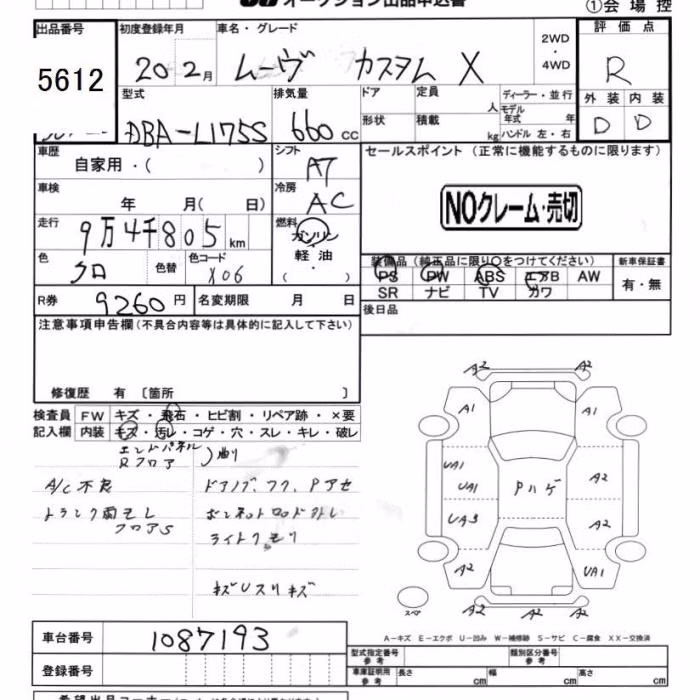 オークション出品申込書 ①会場控
出品番号 初度登録年月 車名・グレード 2WD・4WD 評価点
5612 20 2月 ムーヴ カスタム X R
型式 排気量 ドア 定員 人 ディーラー・並行 外装 内装
DBA-L175S 660 cc 形状 積載 kg モデル年式 年 ハンドル 左・右 D D
車歴 自家用・( ) シフト AT セールスポイント (正常に機能するものに限ります)
車検 年 月( 日) 冷房 AC NOクレーム・売切
走行 9万4千805km 燃料 ガソリン 軽油・( )
色 クロ 色替 色コード X06
装備品 (純正品に限り○をつけてください) 新車保証書
PS PW ABS エアB AW 有・無
SR ナビ TV カワ
R券 9260円 名変期限 月 日 後日品
注意事項申告欄 (不具合内容等は具体的に記入して下さい)
修復歴 有 〔箇所 〕
検査員 FW キズ・飛石・ヒビ割・リペア跡・×要
記入欄 内装 キズ・汚レ・コゲ・穴・スレ・キレ・破レ
エンドパネル
Rフロア )曲り
A/C不良
トランク雨モレ
フロアS
ライトクモリ
キズUスリキズ
A2 A2
A1 A1
UA1
UA1 Pハゲ A2
UA3 A2
A2 UA1
スペア A2 A2 A2
A-キズ E-エクボ U-凹み W-補修跡 S-サビ C-腐食 XX-交換済
車台番号 1087193
登録番号
型式指定番号 参考 類別区分番号 参考
車庫証明用 参考 長さ cm 幅 cm 高さ cm